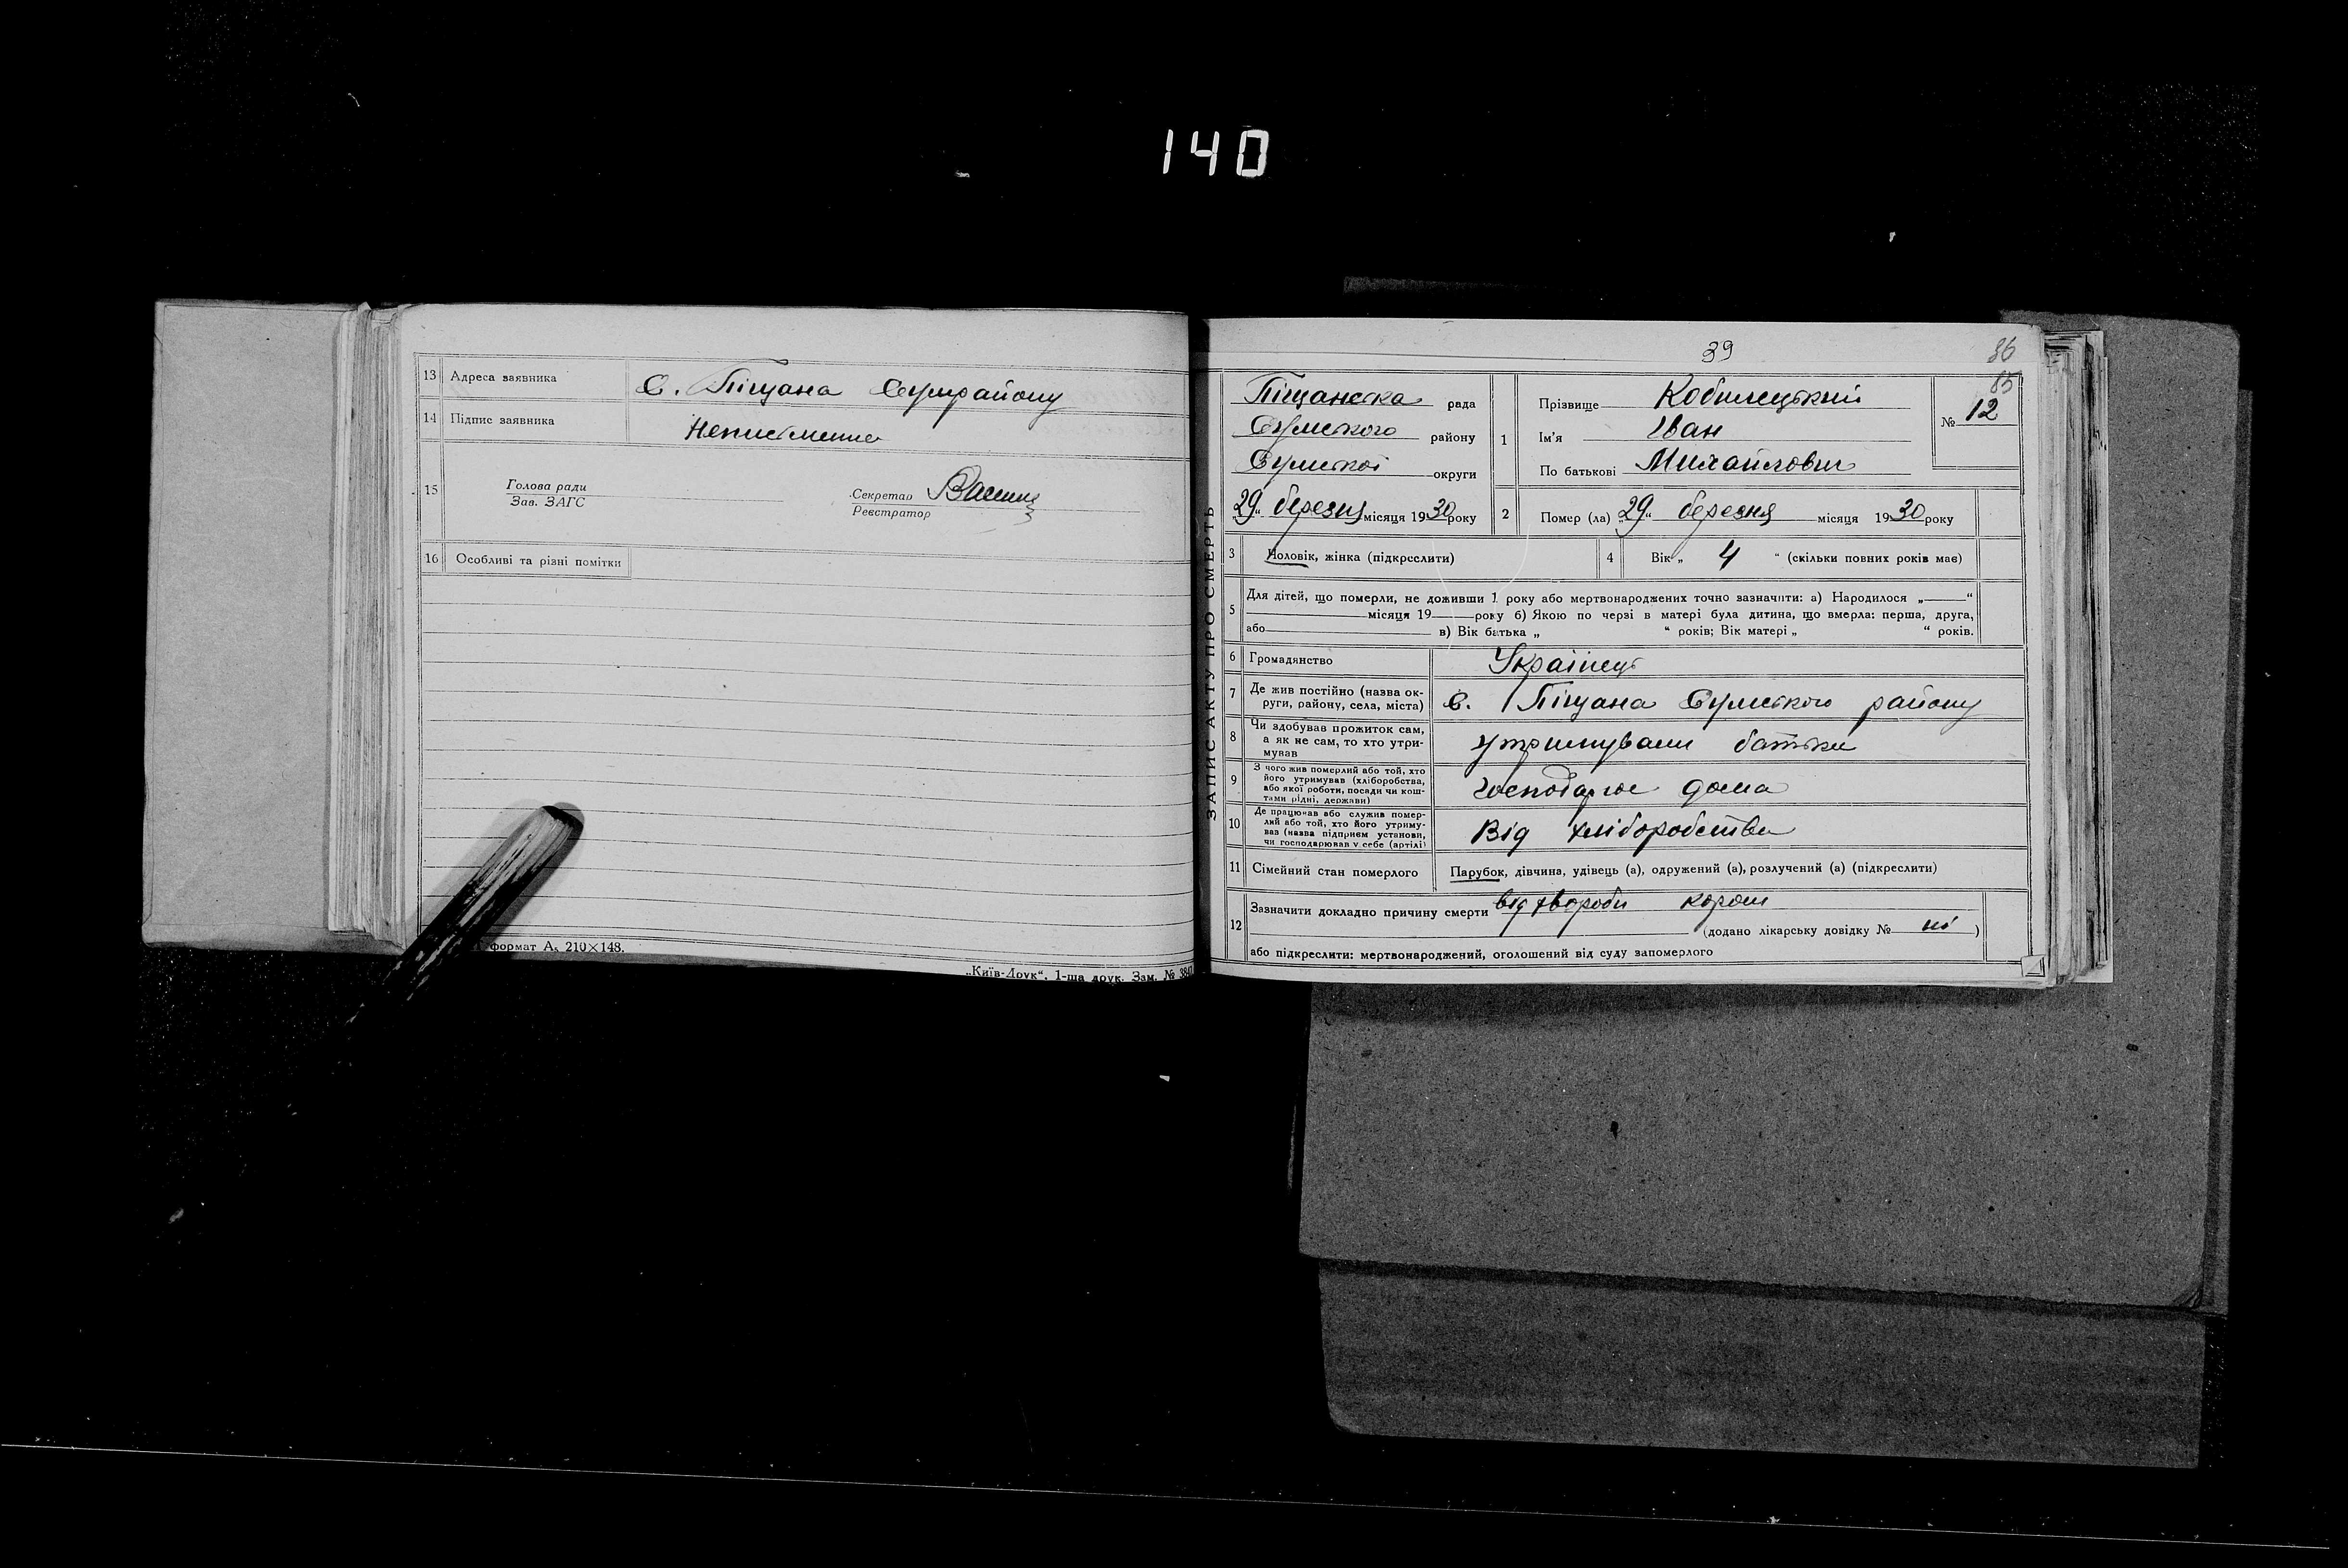 140
13 Адреса заявника с. Піщана Сумрайону
14 Підпис заявника Неписьменна
15 Голова ради
Зав. ЗАГС
Секретар
Реєстратор
16 Особливі та різні помітки
формат А₅ 210×148.
„Київ-Друк“, 1-ша друк. Зам. № 380
39
86
85
ЗАПИС АКТУ ПРО СМЕРТЬ
Піщанська рада
Сумського району
Сумської округи
„29“ березня місяця 1930 року
1 Прізвище Кобилецький
Ім'я Іван
По батькові Михайлович
№ 12
2 Помер (ла) „29“ березня місяця 1930 року
3 Чоловік, жінка (підкреслити)
4 Вік „ 4 “ (скільки повних років має)
5 Для дітей, що померли, не доживши 1 року або мертвонароджених точно зазначити: а) Народилося „ “
місяця 19 року б) Якою по черзі в матері була дитина, що вмерла: перша, друга,
або в) Вік батька „ “ років; Вік матері „ “ років.
6 Громадянство Українець
7 Де жив постійно (назва ок-
руги, району, села, міста) с. Піщана Сумського району
8 Чи здобував прожиток сам,
а як не сам, то хто утри-
мував утримували батьки
9 З чого жив померлий або той, хто
його утримував (хліборобства,
або якої роботи, посади чи кош-
тами рідні, держави) господарює дома
10 Де працював або служив помер-
лий або той, хто його утриму-
вав (назва підприєм установи,
чи господарював у себе (артілі) Від хліборобства
11 Сімейний стан померлого Парубок, дівчина, удівець (а), одружений (а), розлучений (а) (підкреслити)
12 Зазначити докладно причину смерти від хвороби короти
(додано лікарську довідку № ні )
або підкреслити: мертвонароджений, оголошений від суду запомерлого